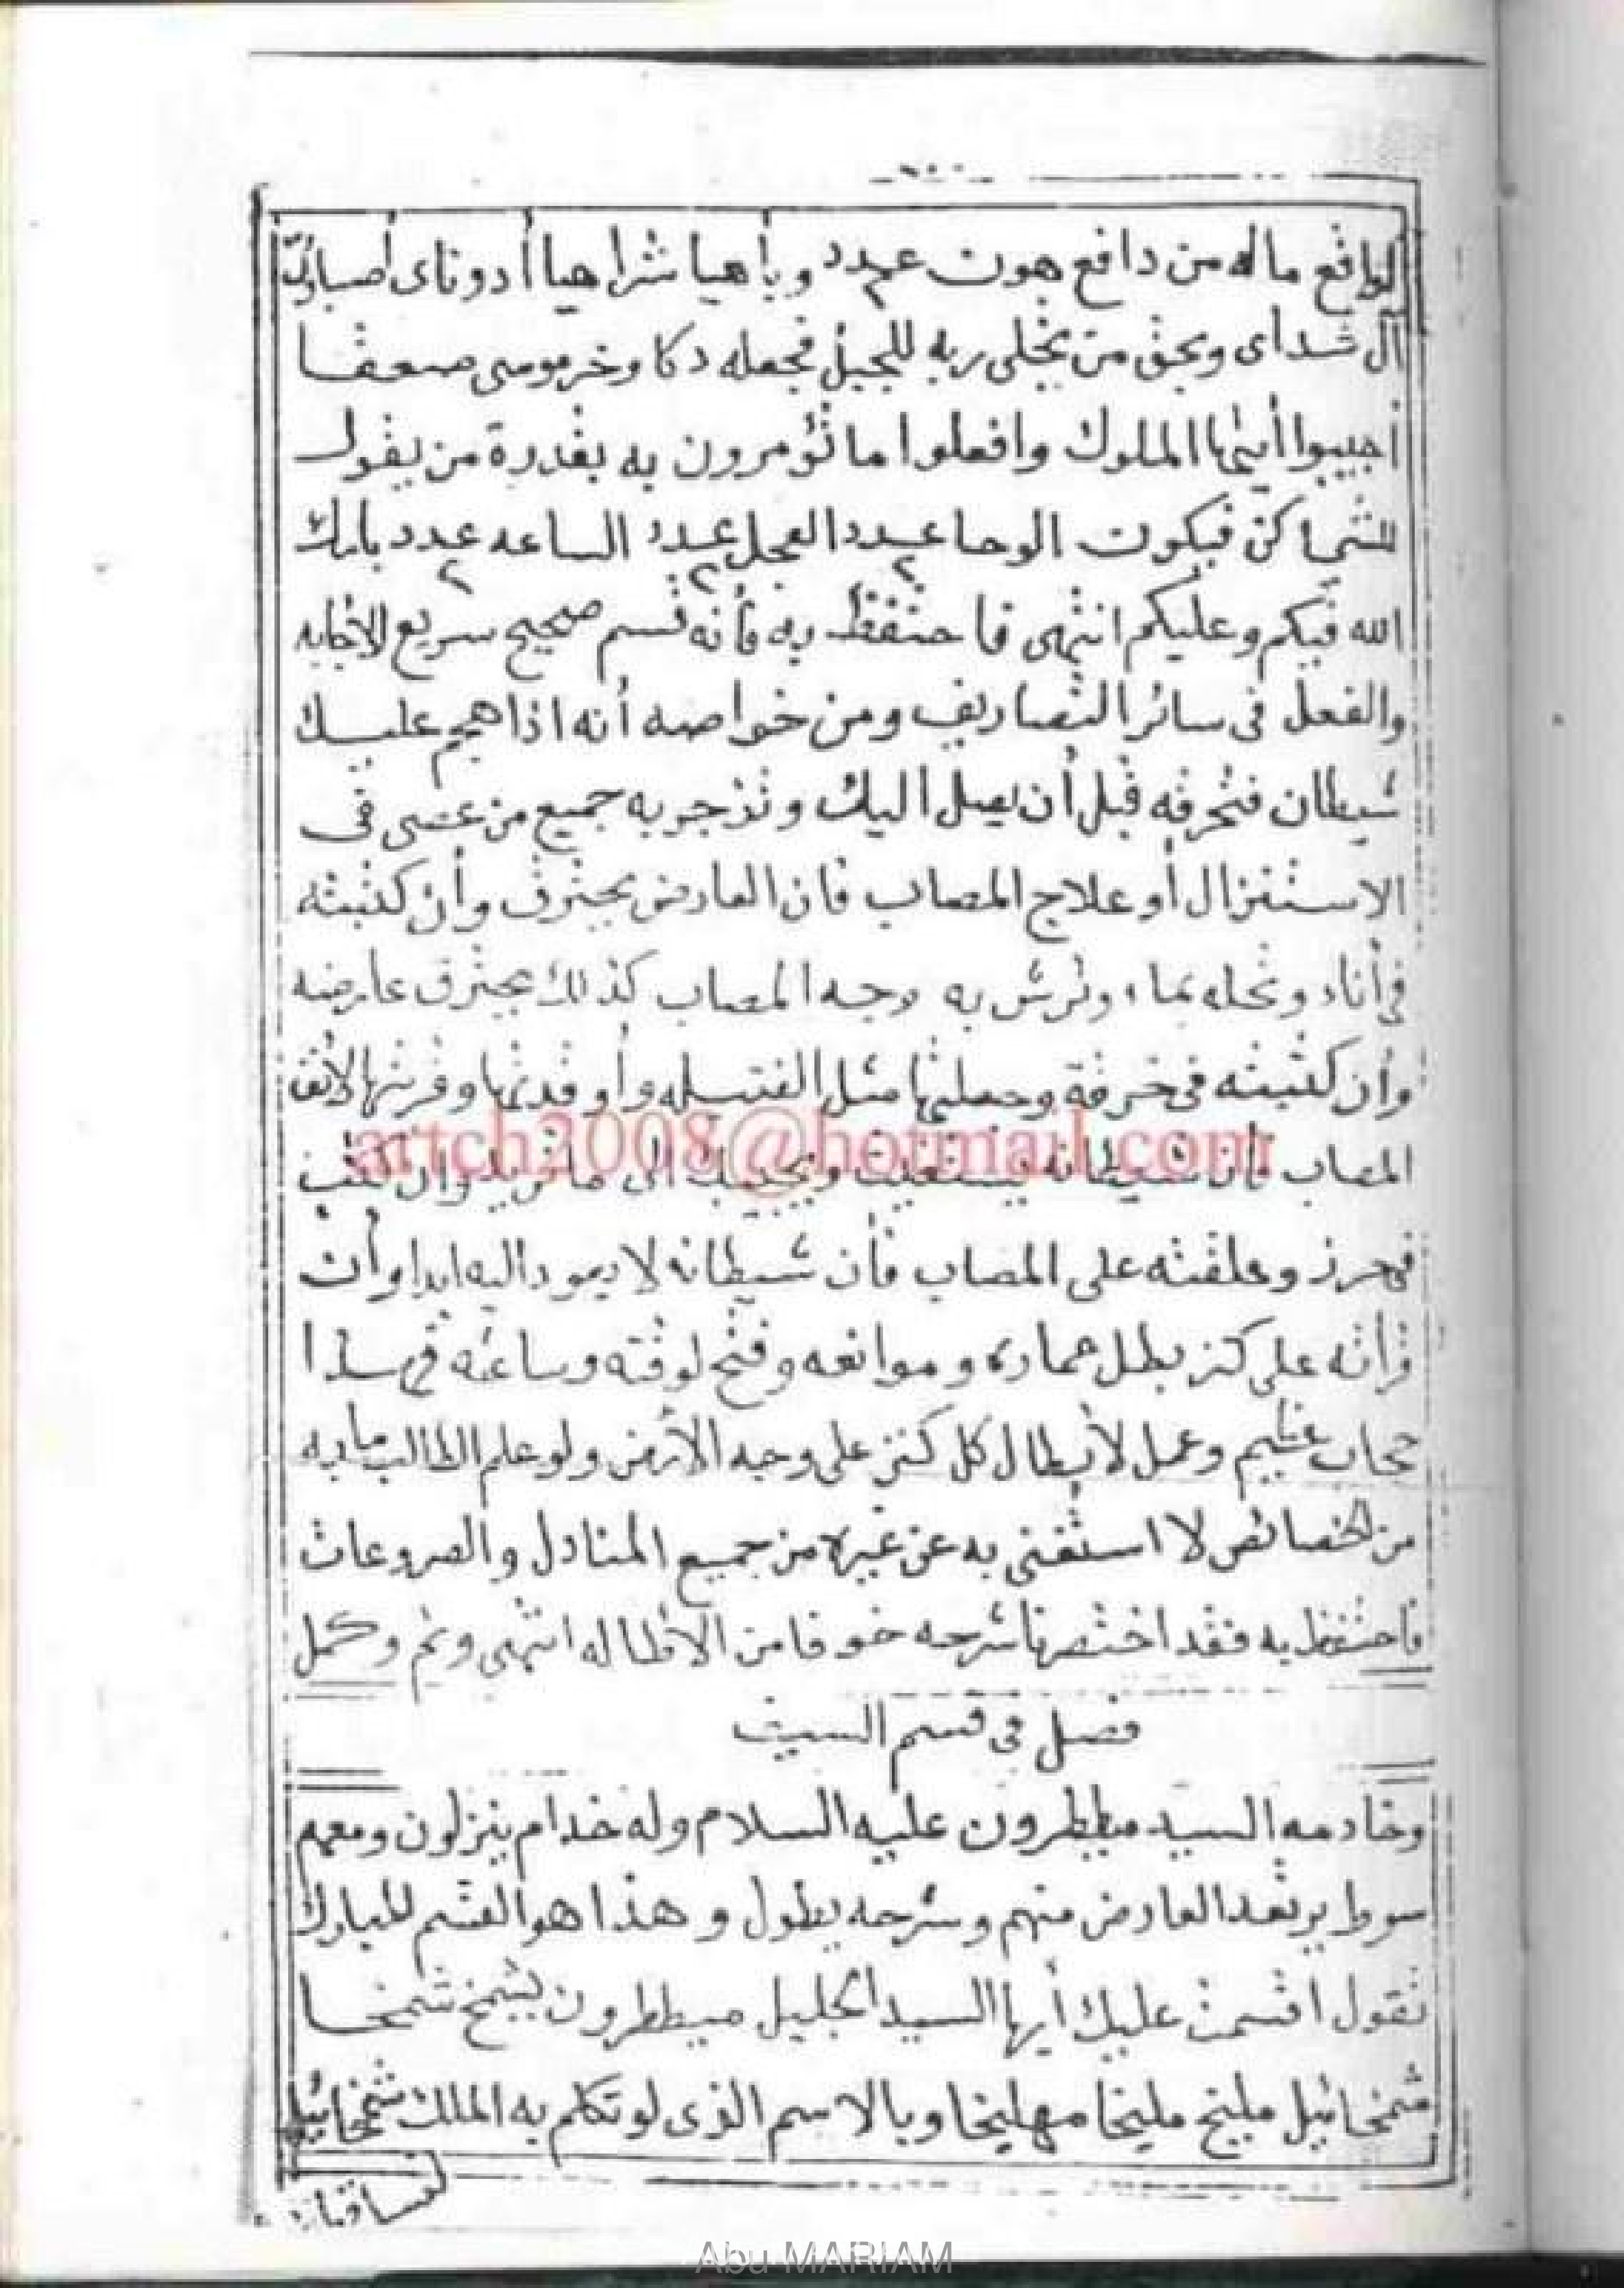 لواقع ماله من دافع هون عدد وبأهيا شراهيا أدوناى أصباؤت
آل شداى وبحق من تجلى ربه للجبل فجعله دكا وخر موسى صعقا
أجيبوا أيتها الملوك وافعلوا ما تؤمرون به بقدرة من يقول
للشئ كن فيكون الوحا عدد ٢ العجل عدد ٢ الساعه عدد ٢ بارك
الله فيكم وعليكم انتهى فاحتفظ به فأنه قسم صحيح سريع الأجابه
والفعل فى سائر التصاريف ومن خواصه أنه اذا هجم عليك
شيطان فتحرقه قبل أن يصل اليك وتزجر به جميع من عصى فى
الاستنزال أو علاج المصاب فان العارض يحترق وأن كتبته
فى أناء وتحله بماء وترش به وجه المصاب كذلك يحترق عارضه
وأن كتبته فى خرقة وجعلتها مثل الفتيله وأوقدتها وقربتها لأنف
المصاب فأن شيطانه يستغيث ويجيبك الى ما تريد وأن كتب
فى حرز وعلقته على المصاب فأن شيطانه لا يعود اليه ابدا وأن
قرأته على كنز بطل عماره وموانعه وفتح لوقته وساعته فهذا
حجاب عظيم وعمل لأبطال كل كنز على وجه الأرض ولو علم الطالب ما به
من الخصائص لاستغنى به عن غيره من جميع المنادل والصروعات
فاحتفظ به فقد اختصرنا شرحه خوفا من الاطاله انتهى وتم وكمل
فصل فى قسم السبت
وخادمه السيد ميططرون عليه السلام وله خدام ينزلون ومعهم
سوط يرتعد العارض منهم وشرحه يطول وهذا هو القسم المبارك
تقول أقسمت عليك أيها السيد الجليل ميططرون بشمخ شمخا
شمخائيل مليخ مليخا مهليخا وبالاسم الذى لو تكلم به الملك شمخائيل
لتساقطت
artch2008@hotmail.com
Abu MARIAM